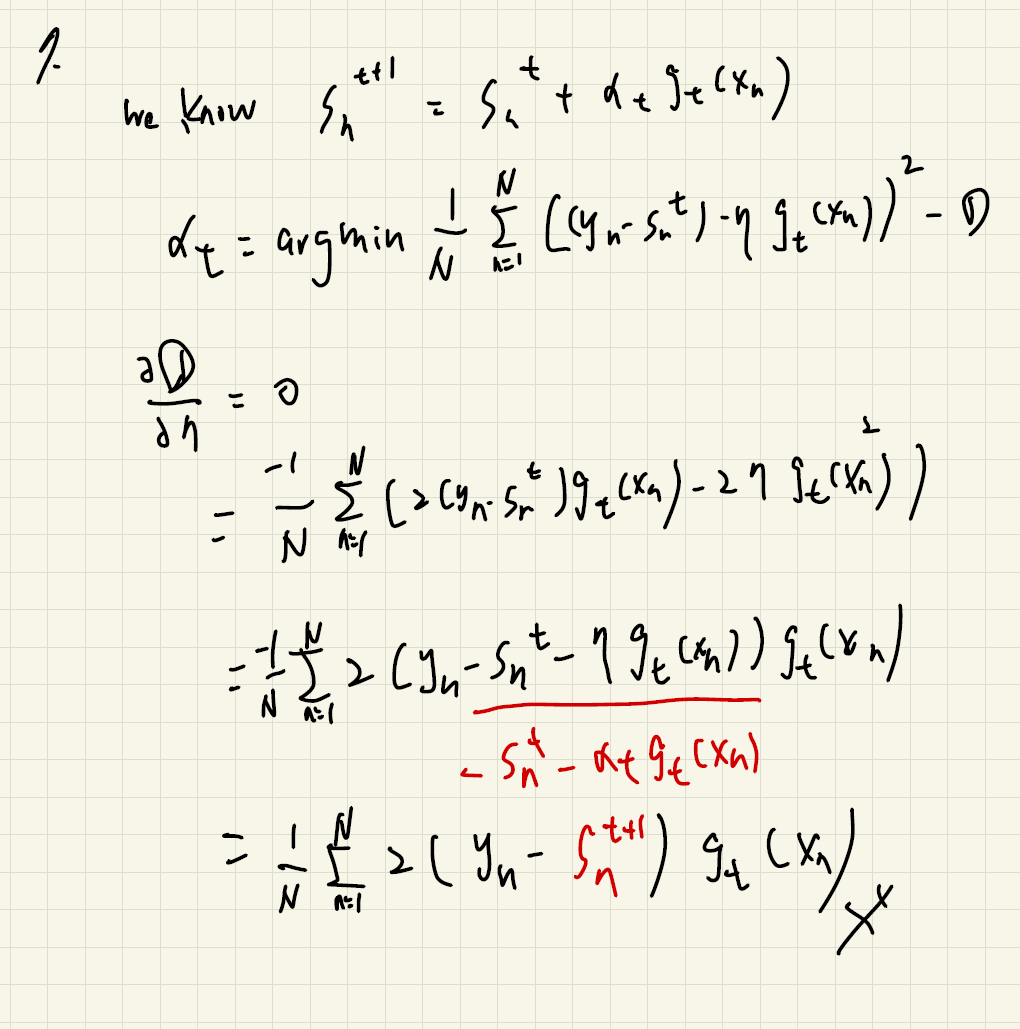 1.
we know S_n^{t+1} = S_n^t + α_t g_t(x_n)
α_t = argmin \frac{1}{N} \sum_{n=1}^{N} ((y_n - S_n^t) - η g_t(x_n))^2 - ①
\frac{∂①}{∂η} = 0
= \frac{-1}{N} \sum_{n=1}^{N} (2(y_n - S_n^t) g_t(x_n) - 2η g_t(x_n)^2)
= \frac{-1}{N} \sum_{n=1}^{N} 2(y_n - S_n^t - η g_t(x_n)) g_t(x_n)
- S_n^t - α_t g_t(x_n)
= \frac{1}{N} \sum_{n=1}^{N} 2(y_n - S_n^{t+1}) g_t(x_n)